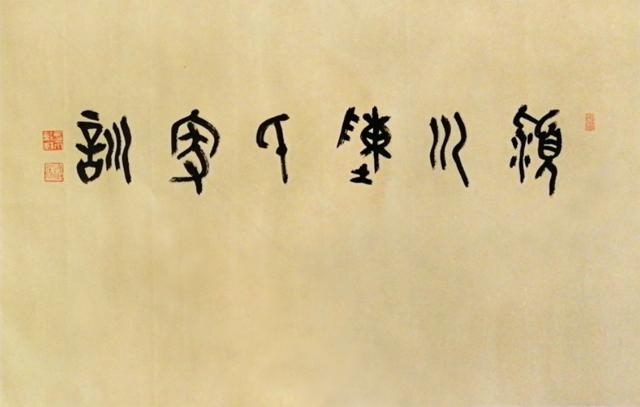 潁川陳氏家訓